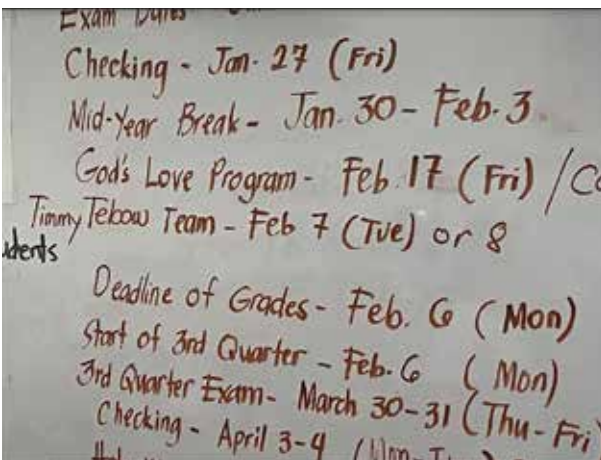 Exam Dates -
Checking - Jan. 27 (Fri)
Mid-Year Break - Jan. 30 - Feb. 3
God's Love Program - Feb. 17 (Fri) / Co
Timmy Tebow Team - Feb 7 (Tue) or 8
udents
Deadline of Grades - Feb. 6 (Mon)
Start of 3rd Quarter - Feb. 6 (Mon)
3rd Quarter Exam - March 30-31 (Thu - Fri)
Checking - April 3-4 (Mon-Tue)